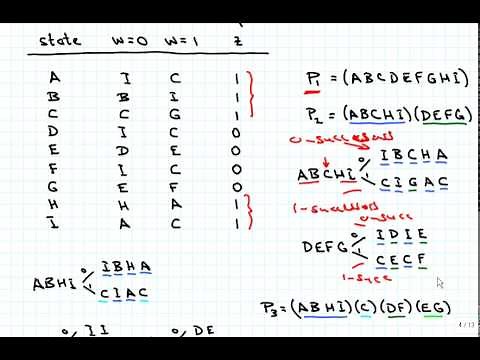 state w=0 w=1 z
A I C 1
B B I 1
C C G 1
D I C 0
E D E 0
F I C 0
G E F 0
H H A 1
I A C 1
P1 = (ABCDEFGHI)
P2 = (ABCHI)(DEFG)
0-successors
0 IBCHA
ABCHI
1 CIGAC
1-successors
0-succ
0 IDIE
DEFG
1 CECF
1-succ
0 IBHA
ABHI
1 CIAC
P3 = (ABHI)(C)(DF)(EG)
0 II 0 DE
4 / 13